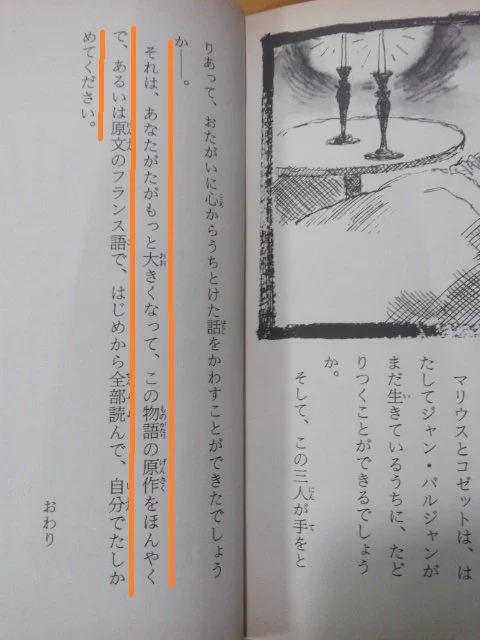 マリウスとコゼットは、は
たしてジャン・バルジャンが
まだ生きているうちに、たど
りつくことができるでしょう
か。
そして、この三人が手をと
りあって、おたがいに心からうちとけた話をかわすことができたでしょう
か――。
それは、あなたがたがもっと大きくなって、この物語の原作をほんやく
で、あるいは原文のフランス語で、はじめから全部読んで、自分でたしか
めてください。
おわり